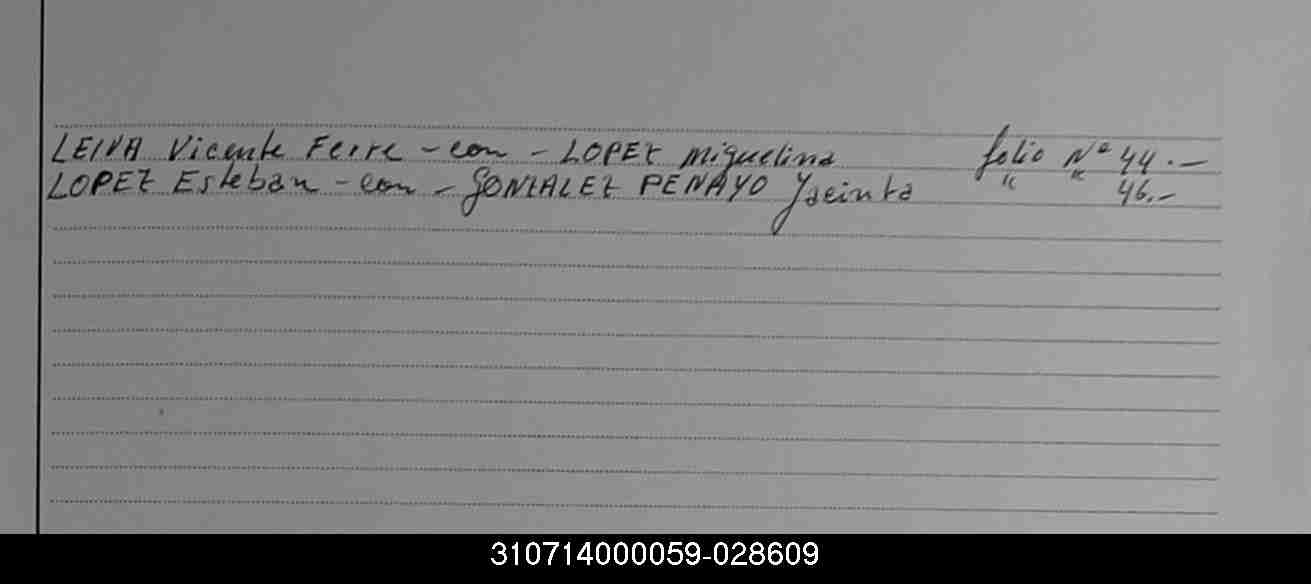 LEIVA Vicente Ferre - con - LOPEZ Miguelina folio Nº 44.-
LOPEZ Esteban - con - GONZALEZ PENAYO Jacinta " " 46.-
310714000059-028609